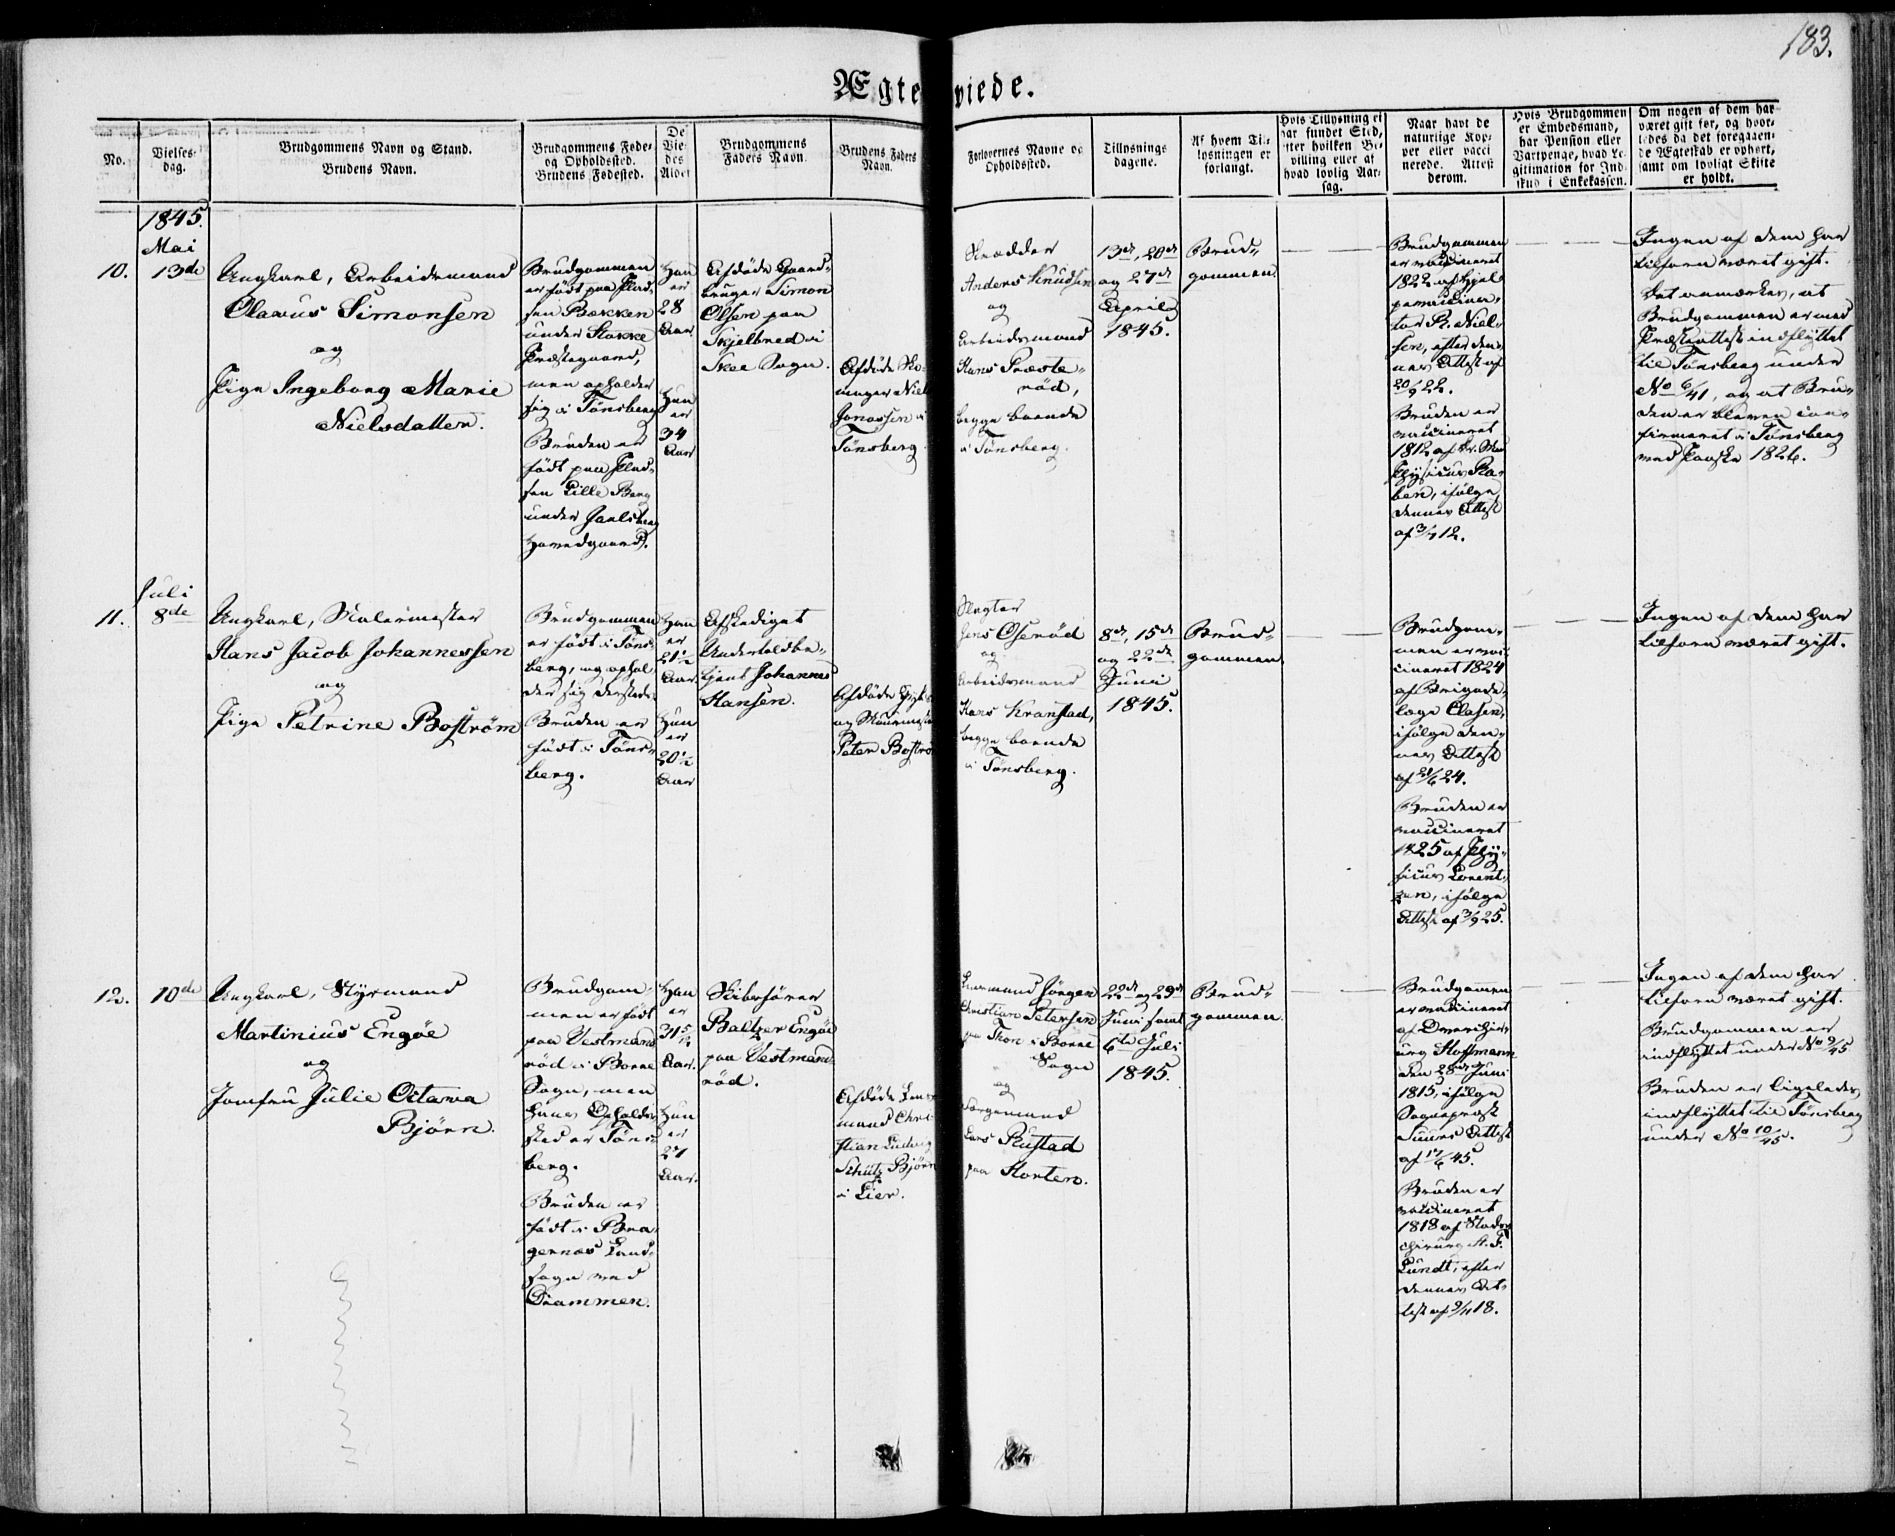 183.
Ægteviede.
No.
Vielses-
dag.
Brudgommens Navn og Stand.
Brudens Navn.
Brudgommens Føde-
og Opholdssted.
Brudens Fødested.
De
Vie-
des
Alder
Brudgommens
Faders Navn
Brudens Faders
Navn.
Forlovernes Navne og
Opholdssted.
Tillysnings
dagene.
Af hvem Til-
lysningen er
forlangt.
Hvis Tillysning ei
har fundet Sted,
efter hvilken Be-
villing eller af
hvad lovlig Aar-
sag.
Naar havt de
naturlige Kop-
per eller vacci
nerede. Attest
derom.
Hvis Brudgommen
er Embedsmand,
har Pension eller
Vartpenge, hvad Le-
gitimation for Ind-
skud i Enkekassen.
Om nogen af dem har
været gift før, og hvor-
ledes da det foregaaen-
de Ægteskab er ophørt,
samt om lovligt Skifte
er holdt.
1845.
Mai
10.
13de
Ungkarl, Arbeidsmand
Olavus Simonsen
og
Pige Ingeborg Marie
Nielsdatter.
Brudgommen
er født paa Plad-
sen Bækken
under Stokke
Præstegaard,
men opholder
sig i Tønsberg
Bruden er
født paa Plad-
sen Lille Berg
under Jarlsberg
Hovedgaard.
Han
er
28
Aar.
Hun
er
34
Aar
Afdøde Gaard-
bruger Simon
Olsen paa
Skjelbred i
Skee Sogn.
Afdøde Sko-
mager Niels
Jonassen i
Tønsberg.
Skrædder
Anders Knudsen
og
Arbeidsmand
Hans Præste-
rød,
begge boende
i Tønsberg.
13de, 20de
og 27de
April
1845.
Brud-
gommen.
Brudgommen
er vaccineret
1822 af Hjæl-
pevaccina-
tor R. Niel-
sen, efter den-
nes Attest af
20/9 22.
Bruden er
vaccineret
1812 af
Physicus Ra-
ben, ifølge
dennes Attest
af 3/7 12.
Ingen af dem har
tilforn været gift.
Det anmærkes, at
Brudgommen er med
Præsteattest indflyttet
til Tønsberg under
No 6/41, og at Bru-
den er bleven con-
firmeret i Tønsberg
ved Paaske 1826.
Juli
11.
8de
Ungkarl, Malermester
Hans Jacob Johannessen
og
Pige Petrine Boström
Brudgommen
er født i Tøns-
berg, og ophol-
der sig dersteds.
Bruden er
født i Tøns-
berg.
Han
er
21 1/2
Aar.
Hun
er
20 1/2
Aar
Afskediget
Undertoldbe-
tjent Johannes
Hansen.
Afdøde
og Muurmester
Peter Boström
Slagter
Jens Oserød
og
Arbeidsmand
Hans Kranstad,
begge boende
i Tønsberg.
8de, 15de
og 22de
Juni
1845.
Brud-
gommen.
Brudgom-
men er vac-
cineret 1824
af Brigade-
læge Clasen,
ifølge den-
nes Attest
af 21/6 24.
Bruden er
vaccineret
1825 af Phy-
sicus Lorent-
zen, ifølge
Attest af 3/9 25.
Ingen af dem har
tilforn været gift.
12.
10de
Ungkarl, Styrmand
Martinius Engöe
og
Jomfru Julie Octavia
Bjørn.
Brudgom-
men er født
paa Vestman-
rød i Borre
Sogn, men
hans Opholds-
sted er Tøns-
berg.
Bruden er
født i Bra-
gernæs Land-
sogn ved
Drammen.
Han
er
31 5/12
Aar.
Hun
er
27
Aar.
Skibsfører
Baltzer Engöe
paa Vestman-
rød.
Afdøde Lens-
mand Chri-
stian Ludvig
Schütz Bjørn
i Lier.
Lensmand Jørgen
Christian Petersen
paa Thon i Borre
Sogn
og
Sergeant
Lars Rustad
paa Horten.
22de og 29de
Juni samt
6te Juli
1845.
Brud-
gommen.
Brudgommen
er vaccineret
af Overchir-
urg Hoffmann
den 28de Juni
1815, ifølge
Sogneprest
Attest
af 17/6 45.
Bruden er
vaccineret
1818 af Stads-
chirurg H. F.
Lundt, efter
dennes At-
test af 9/11 18.
Ingen af dem har
tilforn været gift.
Brudgommen er
indflyttet under No 9/45
Bruden er ligeledes
indflyttet til Tønsberg
under No 10/45.